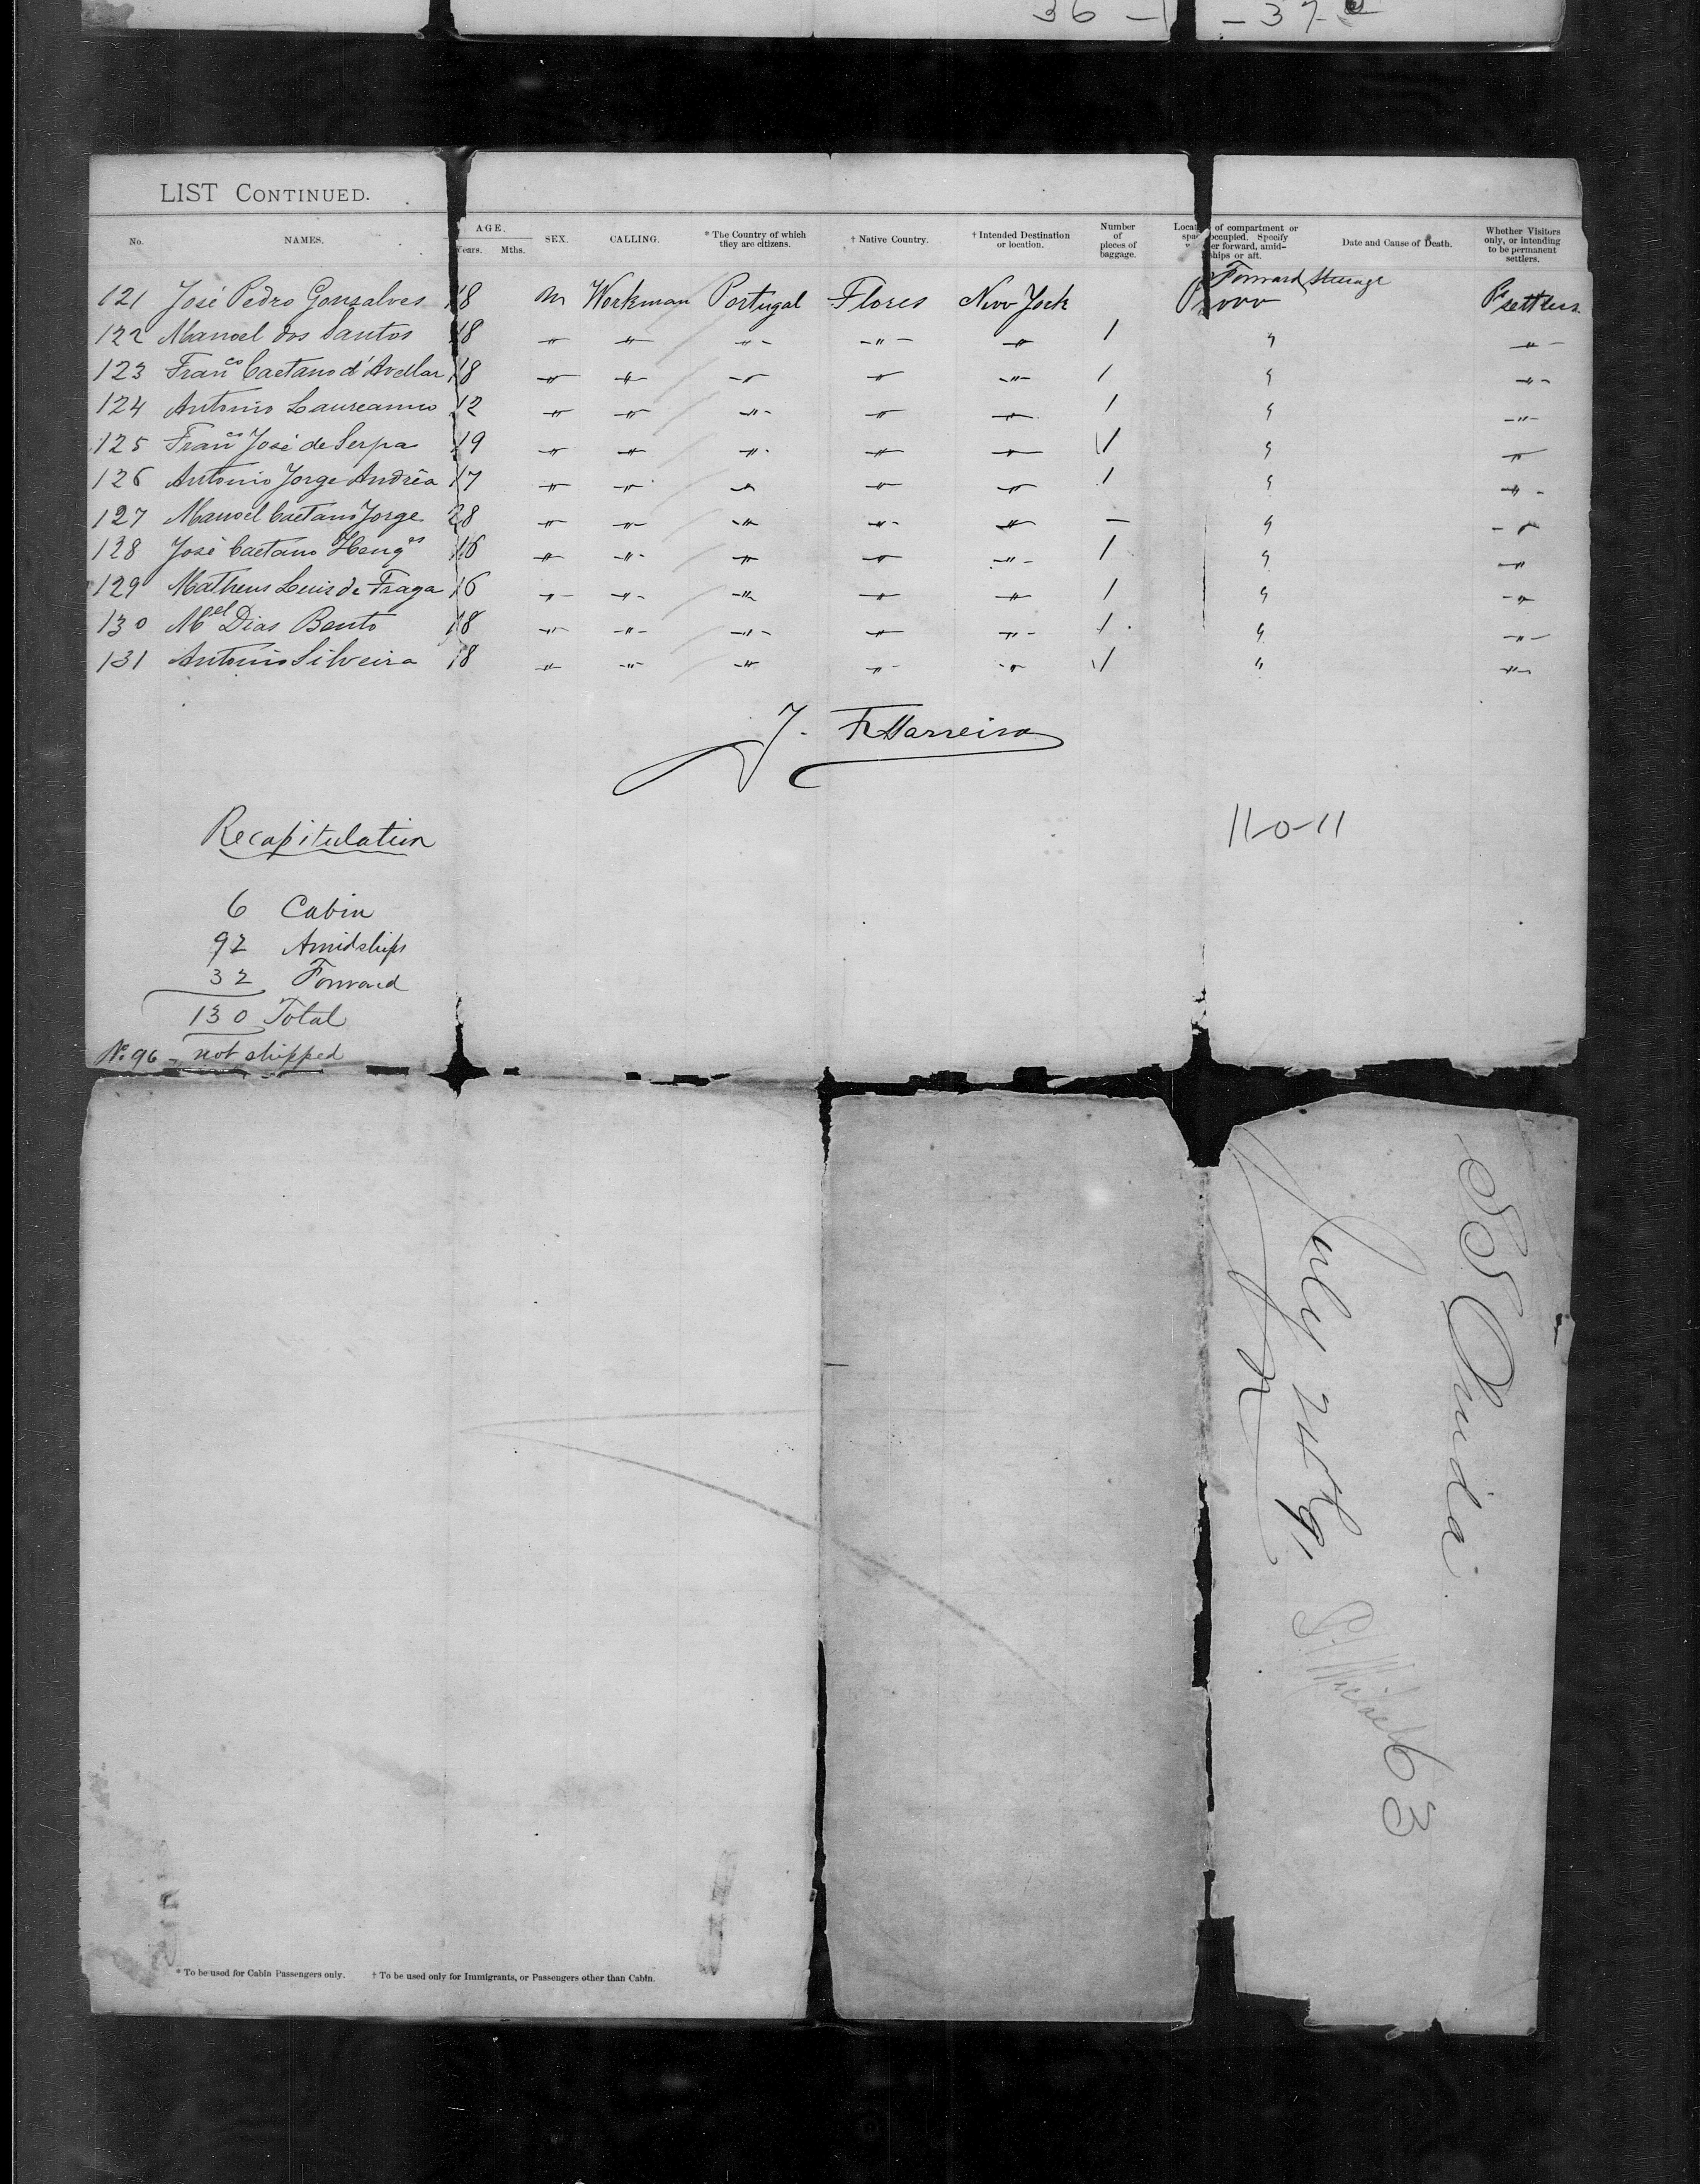 36 – 1 – 37
LIST CONTINUED.
No. NAMES. AGE. Years. Mths. SEX. CALLING. * The Country of which they are citizens. † Native Country. † Intended Destination or location. Number of pieces of baggage. of compartment or occupied. Specify forward, amidships or aft. Date and Cause of Death. Whether Visitors only, or intending to be permanent settlers.
Forward Steerage
121 José Pedro Gonsalves 18 m Workman Portugal Flores New York P settlers
122 Manoel dos Santos 18 " " " " " 1 " "
123 Fran.co Caetano d'Avellar 18 " " " " " 1 " "
124 Antonio Laureanno 12 " " " " " 1 " "
125 Fran.co José de Serpa 19 " " " " " 1 " "
126 Antonio Jorge Andrêa 17 " " " " " 1 " "
127 Manoel Caetano Jorge 28 " " " " " – " "
128 José Caetano Henqes 16 " " " " " 1 " "
129 Matheus Luis de Fraga 16 " " " " " 1 " "
130 Mel Dias Bento 18 " " " " " 1 " "
131 Antonio Silveira 18 " " " " " 1 " "
Recapitulation
11-0-11
6 Cabin
92 Amidships
32 Forward
130 Total
No. 96 – not shipped
SS Olinda
July 21st 91
St Michael
63
* To be used for Cabin Passengers only. † To be used only for Immigrants, or Passengers other than Cabin.